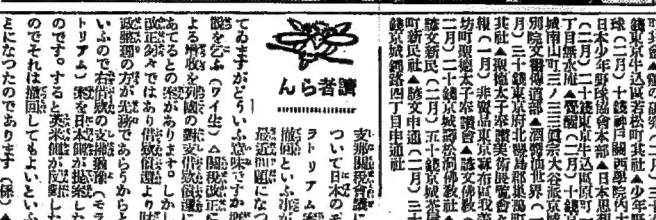 錢東京牛込區若松町其社▲少年野
球（二月）十錢神戸關西學院內
日本少年野球協會本部▲日本思想
（二月）二十錢東京牛込區原町二
丁目無水庵▲覺醒（二月）
城南山町三ノ三三眞宗大谷派京城
別院文書傳道部▲酒醬油世界（一
月）三十錢東京府北豐島郡巢鴨町
其社▲聖德太子奉讃美術展覽會
報（一月）非賣品東京麻布區我善
坊町聖德太子奉讃會▲諺文佛教（
二月）二十錢京城壽松洞佛教社▲
諺文新民（二月）五十錢京城茶屋
町新民社▲諺文申通（二月）三十
錢京城鍾路四丁目申通社
讀者らん
支那關稅會議に
ついて日本のモ
ラトリアム案
撤回といふ事が
最近問題になつ
てゐますがどういふ意味ですか解
說を乞ふ（ワイ生）△關稅改正に
よる增收を列國の對支借款償還に
あてるとの案があります。しかし
改正刻々ではあり借款償還より財
政整理の方が先務であらうからと
いふので右借款の支拂猶豫（モラ
トリアム）案を日本側が提案した
のです。すると英米側が反對した
のでそれは撤回してもよいといふ
ことになつたのであります（係）▲